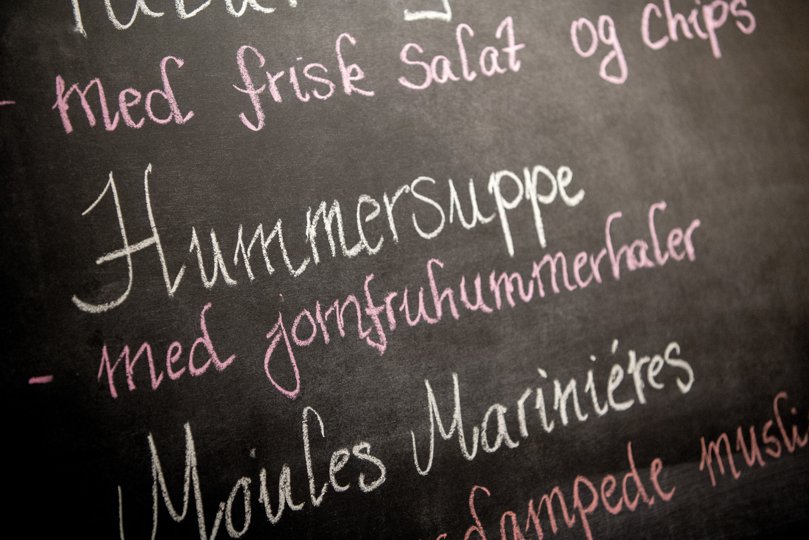 - med frisk salat og chips
Hummersuppe
- med jomfruhummerhaler
Moules Mariniéres